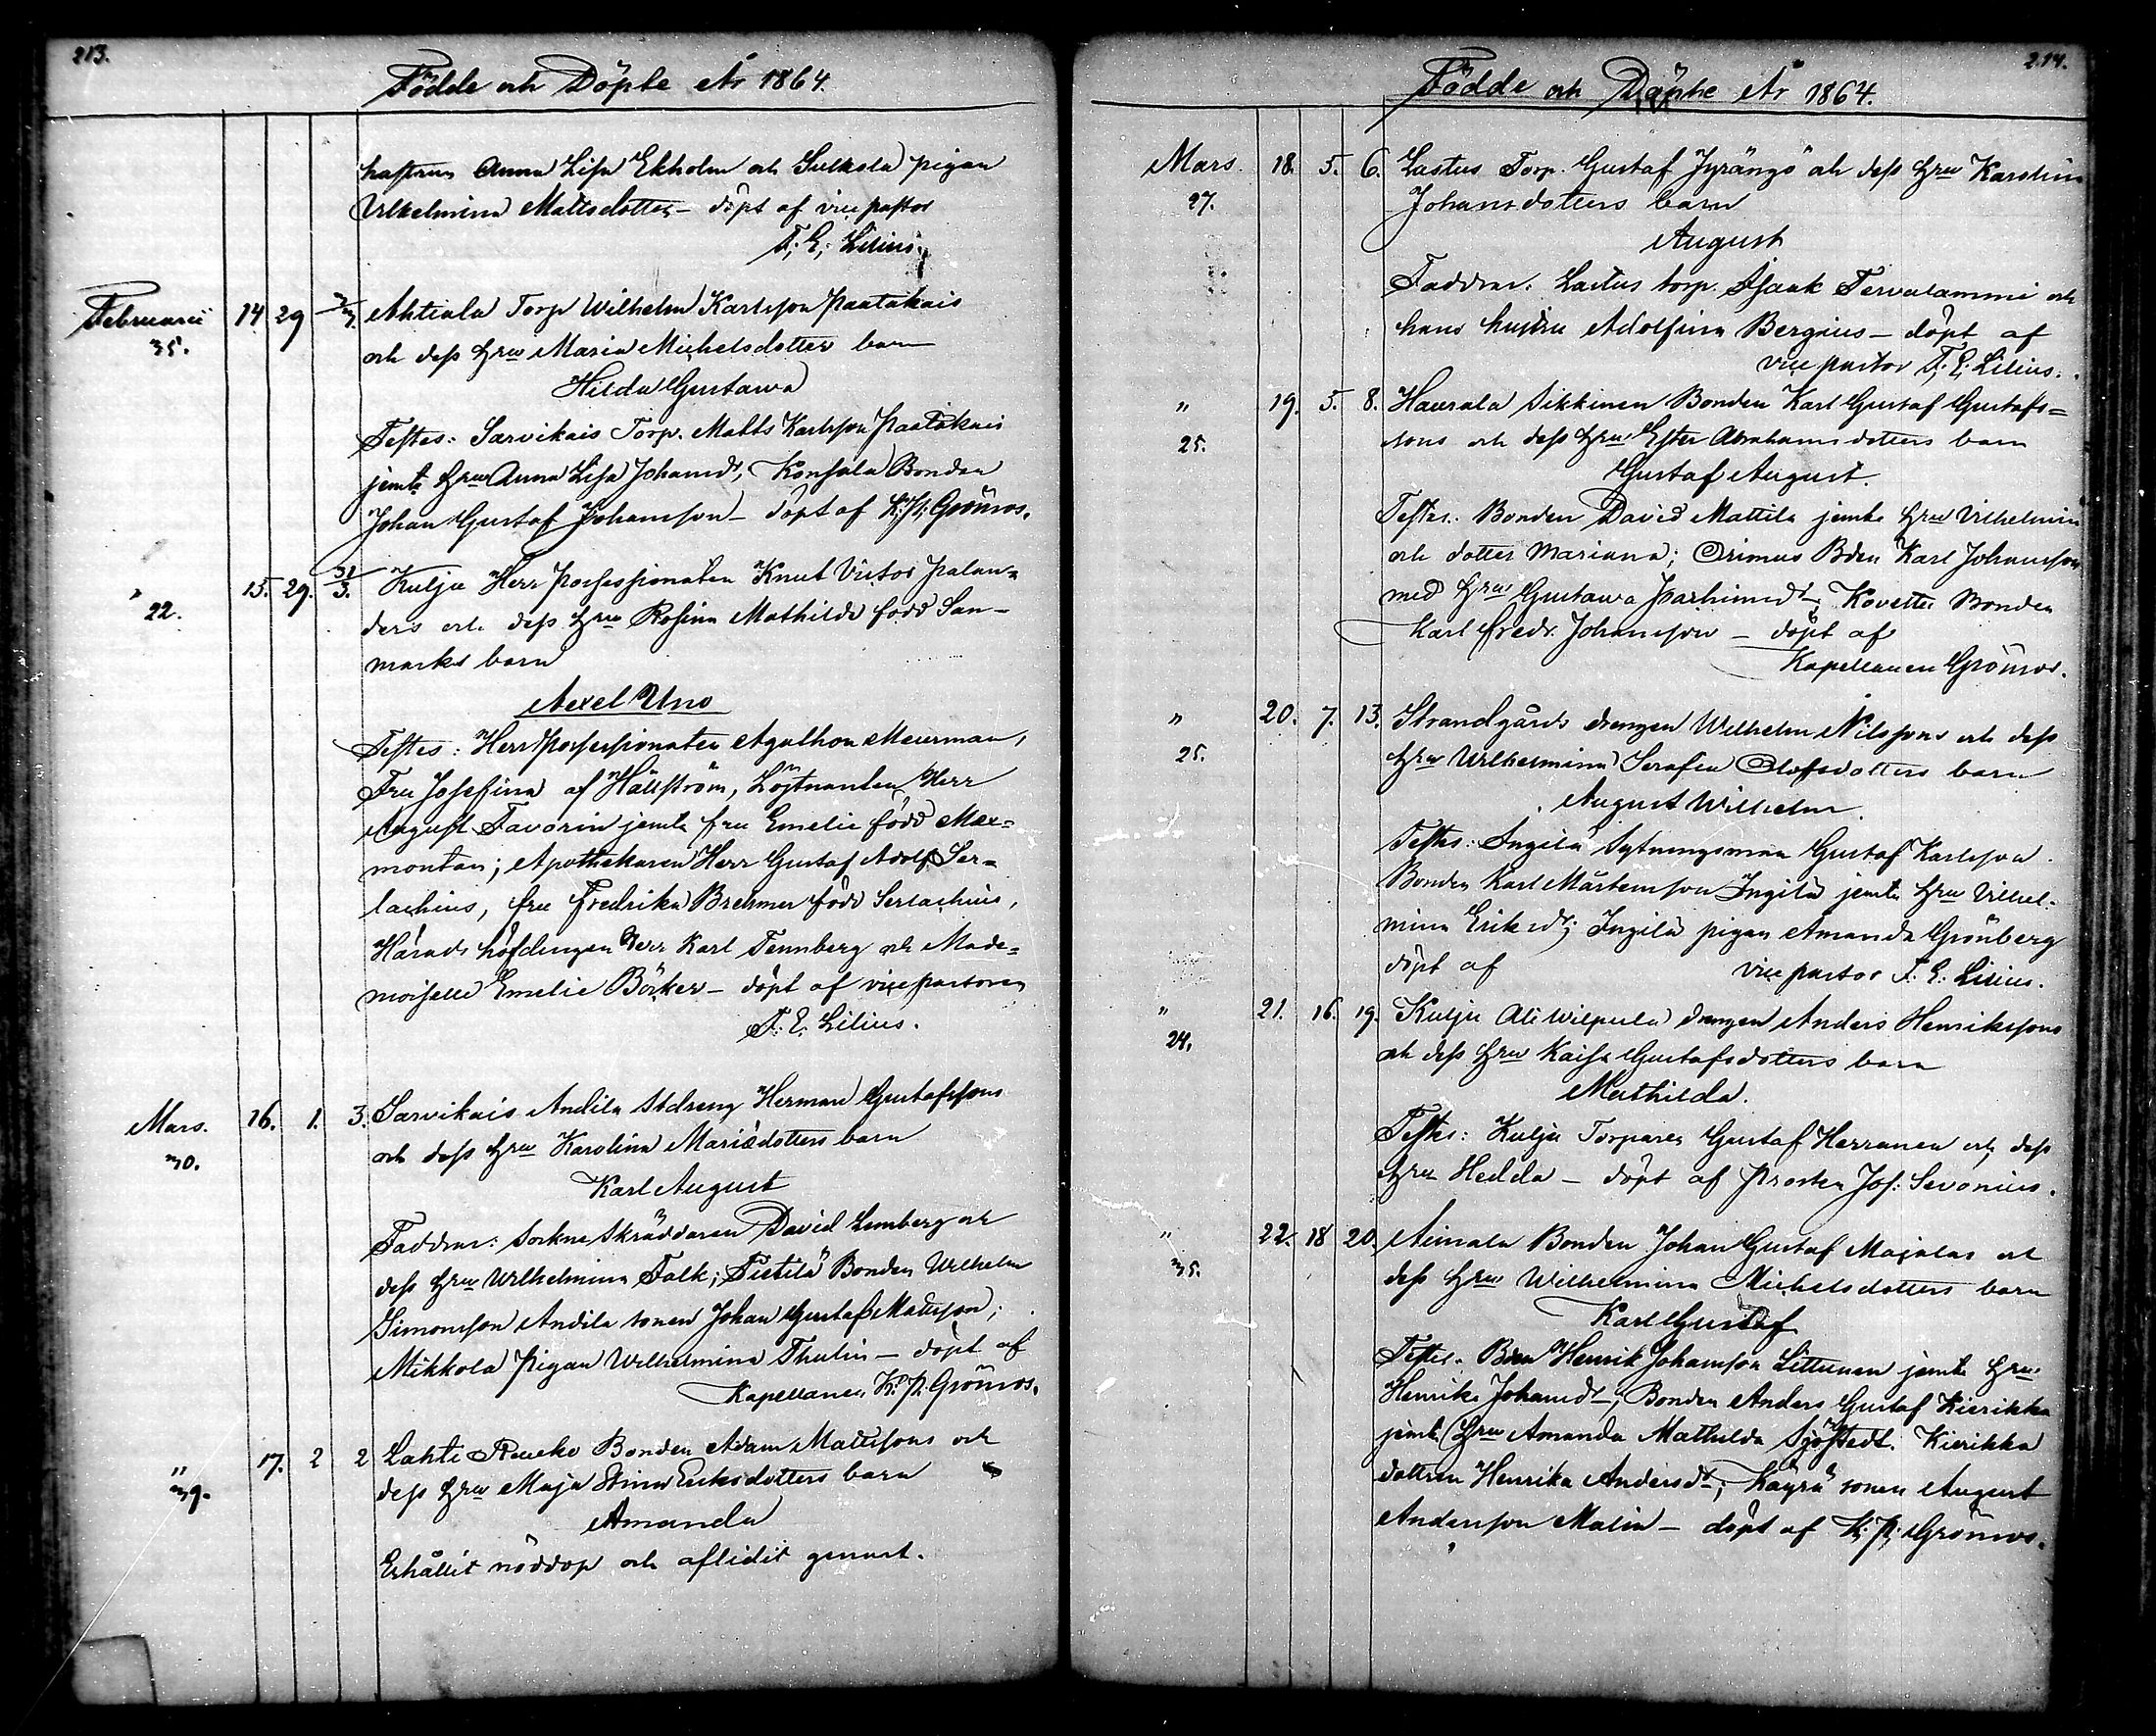 213.
Födde och Döpte År 1864.
hustrun Anna Lisa Ekholm och Sulkola pigan
Vilhelmina Mattsdotter – döpt af vice pastor
F. E. Lilius.
Februarii 14 29 2/3. Ahtiala Torp Wilhelm Karlsson Paatakais
35. och dess Hru Maria Michelsdotters barn
Hilda Gustawa
Testes: Sarvikais Torp. Matts Karlsson Paatakais
jemte Hru Anna Lisa Johansdr, Konsala Bonden
Johan Gustaf Johansson – döpt af K. P. Grönros.
" 15. 29. 31/3. Kulju Herr Possessionaten Knut Victor Palan=
22. ders och dess Hru Rosina Mathilda född San=
marks barn
Axel Uno
Testes: Herr Possessionaten Agathon Meurman,
Fru Josefina af Hällström, Löjtnanten Herr
August Favorin jemte fru Emelie född Mex=
montan; Apothekaren Herr Gustaf Adolf Ser=
lachius, fru Fredrika Brehmer född Serlachius,
Härads höfdingen Herr Karl Tennberg och Made=
moiselle Emelie Böcker – döpt af vice pastoren
F. E. Lilius.
Mars. 16. 1. 3. Sarvikais Andila Stdreng Herman Gustafssons
30. och dess Hru Karolina Mariædotters barn
Karl August
Faddrar: Sockne Skräddaren David Lemberg och
dess Hru Wilhelmina Falk; Tietilä Bonden Wilhelm
Simonsson Andila sonen Johan Gustaf Mattsson;
Mikkola Pigan Wilhelmina Thulin – döpt af
Kapellanen K. P. Grönros.
" 17. 2 2 Lahti Reuko Bonden Adam Mattssons och
39. dess Hru Maja Stina Eriksdotters barn
Amanda
Erhållit nöddop och aflidit genast.
214.
Födde och Döpte År 1864.
Mars. 18. 5. 6. Lastus Torp. Gustaf Jyrängö och dess Hru Karolina
27. Johansdotters barn
August
Faddrar. Lastus torp. Isaak Tervalammi och
hans hustru Adolfina Bergius – döpt af
vice pastor F. E. Lilius.
" 19. 5. 8. Haurala Sikkinen Bonden Karl Gustaf Gustafs=
25. sons och dess Hru Ester Abrahamsdotters barn
Gustaf August.
Testes. Bonden David Mattila jemte Hru Vilhelmina
och dotter Mariana; Orimus Bden Karl Johansson
med Hru Gustawa Joachimsdr, Kovette Bonden
Karl Fredr. Johansson – döpt af
Kapellanen Grönros.
" 20. 7. 13. Strandgårds drengen Wilhelm Nilssons och dess
25. Hru Wilhelmina Serafia Olofsdotters barn
August Wilhelm.
Testes: Ingilä Sytningsman Gustaf Karlsson.
Bonden Karl Mårtensson Ingilä jemte Hru Vilhel=
mina Eriksdr; Ingilä pigan Amanda Grönberg
döpt af vice pastor F. E. Lilius.
" 21. 16. 19. Kulju Ali Wilpula drengen Anders Henrikssons
24. och dess Hru Kaisa Gustafsdotters barn
Mathilda.
Testes: Kulju Torparen Gustaf Herranen och dess
Hru Hedda – döpt af Prosten Jos. Sevonius.
" 22. 18 20. Aimala Bonden Johan Gustaf Majalas och
35. dess Hru Wilhelmina Michelsdotters barn
Karl Gustaf
Testes. Bden Henrik Johansson Littunen jemte Hru
Henrika Johansdr, Bonden Anders Gustaf Kierikka
jemte Hru Amanda Mathilda Sjöstedt. Kierikka
dottren Henrika Andersdr; Käyrä sonen August
Andersson Malin – döpt af K. P. Grönros.